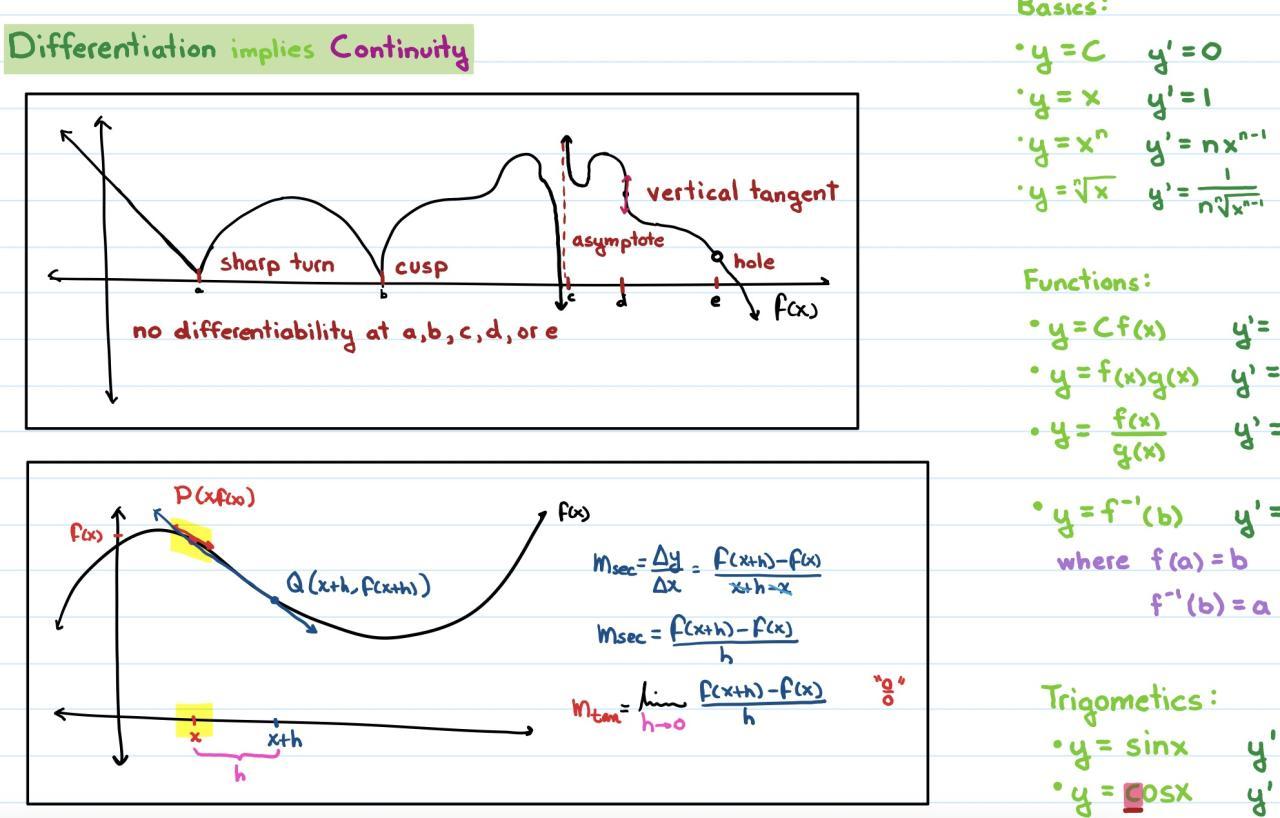 Differentiation implies Continuity
sharp turn
cusp
asymptote
vertical tangent
hole
a
b
c
d
e
f(x)
no differentiability at a,b,c,d,or e
P(x,f(x))
f(x)
f(x)
Q(x+h,f(x+h))
x
x+h
h
m_sec = Δy/Δx = f(x+h)-f(x)/x+h-x
m_sec = f(x+h)-f(x)/h
m_tan = lim h→0 f(x+h)-f(x)/h
"0/0"
Basics:
• y = C y' = 0
• y = x y' = 1
• y = xⁿ y' = nxⁿ⁻¹
• y = ⁿ√x y' = 1/n ⁿ√xⁿ⁻¹
Functions:
• y = Cf(x) y' =
• y = f(x)g(x) y' =
• y = f(x)/g(x) y' =
• y = f⁻¹(b) y' =
where f(a) = b
f⁻¹(b) = a
Trigometics:
• y = sinx y'
• y = cosx y'